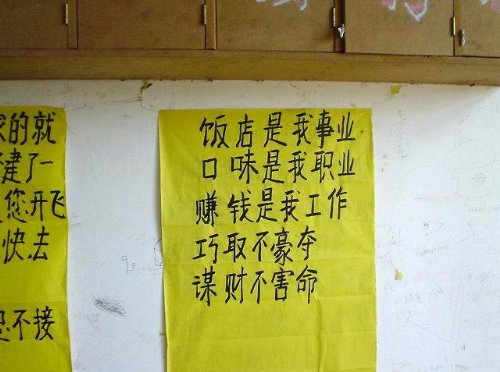 的就
建了一
您开飞
快去
不接
饭店是我事业
口味是我职业
赚钱是我工作
巧取不豪夺
谋财不害命